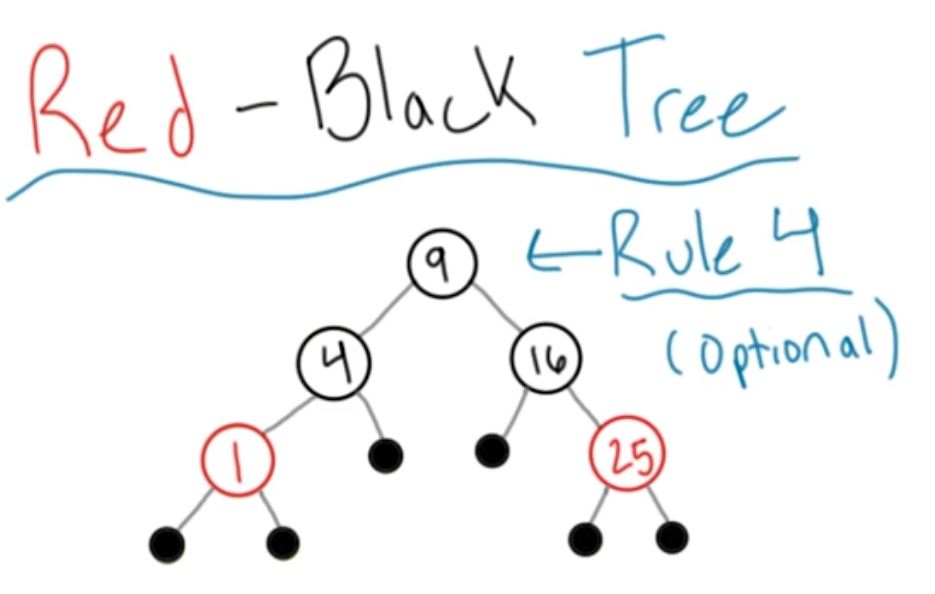 Red - Black Tree
9
← Rule 4
(Optional)
4
16
1
25